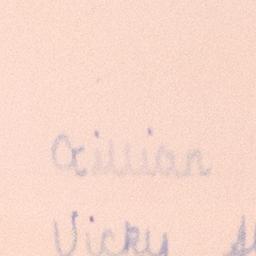 Gillian
Vicky